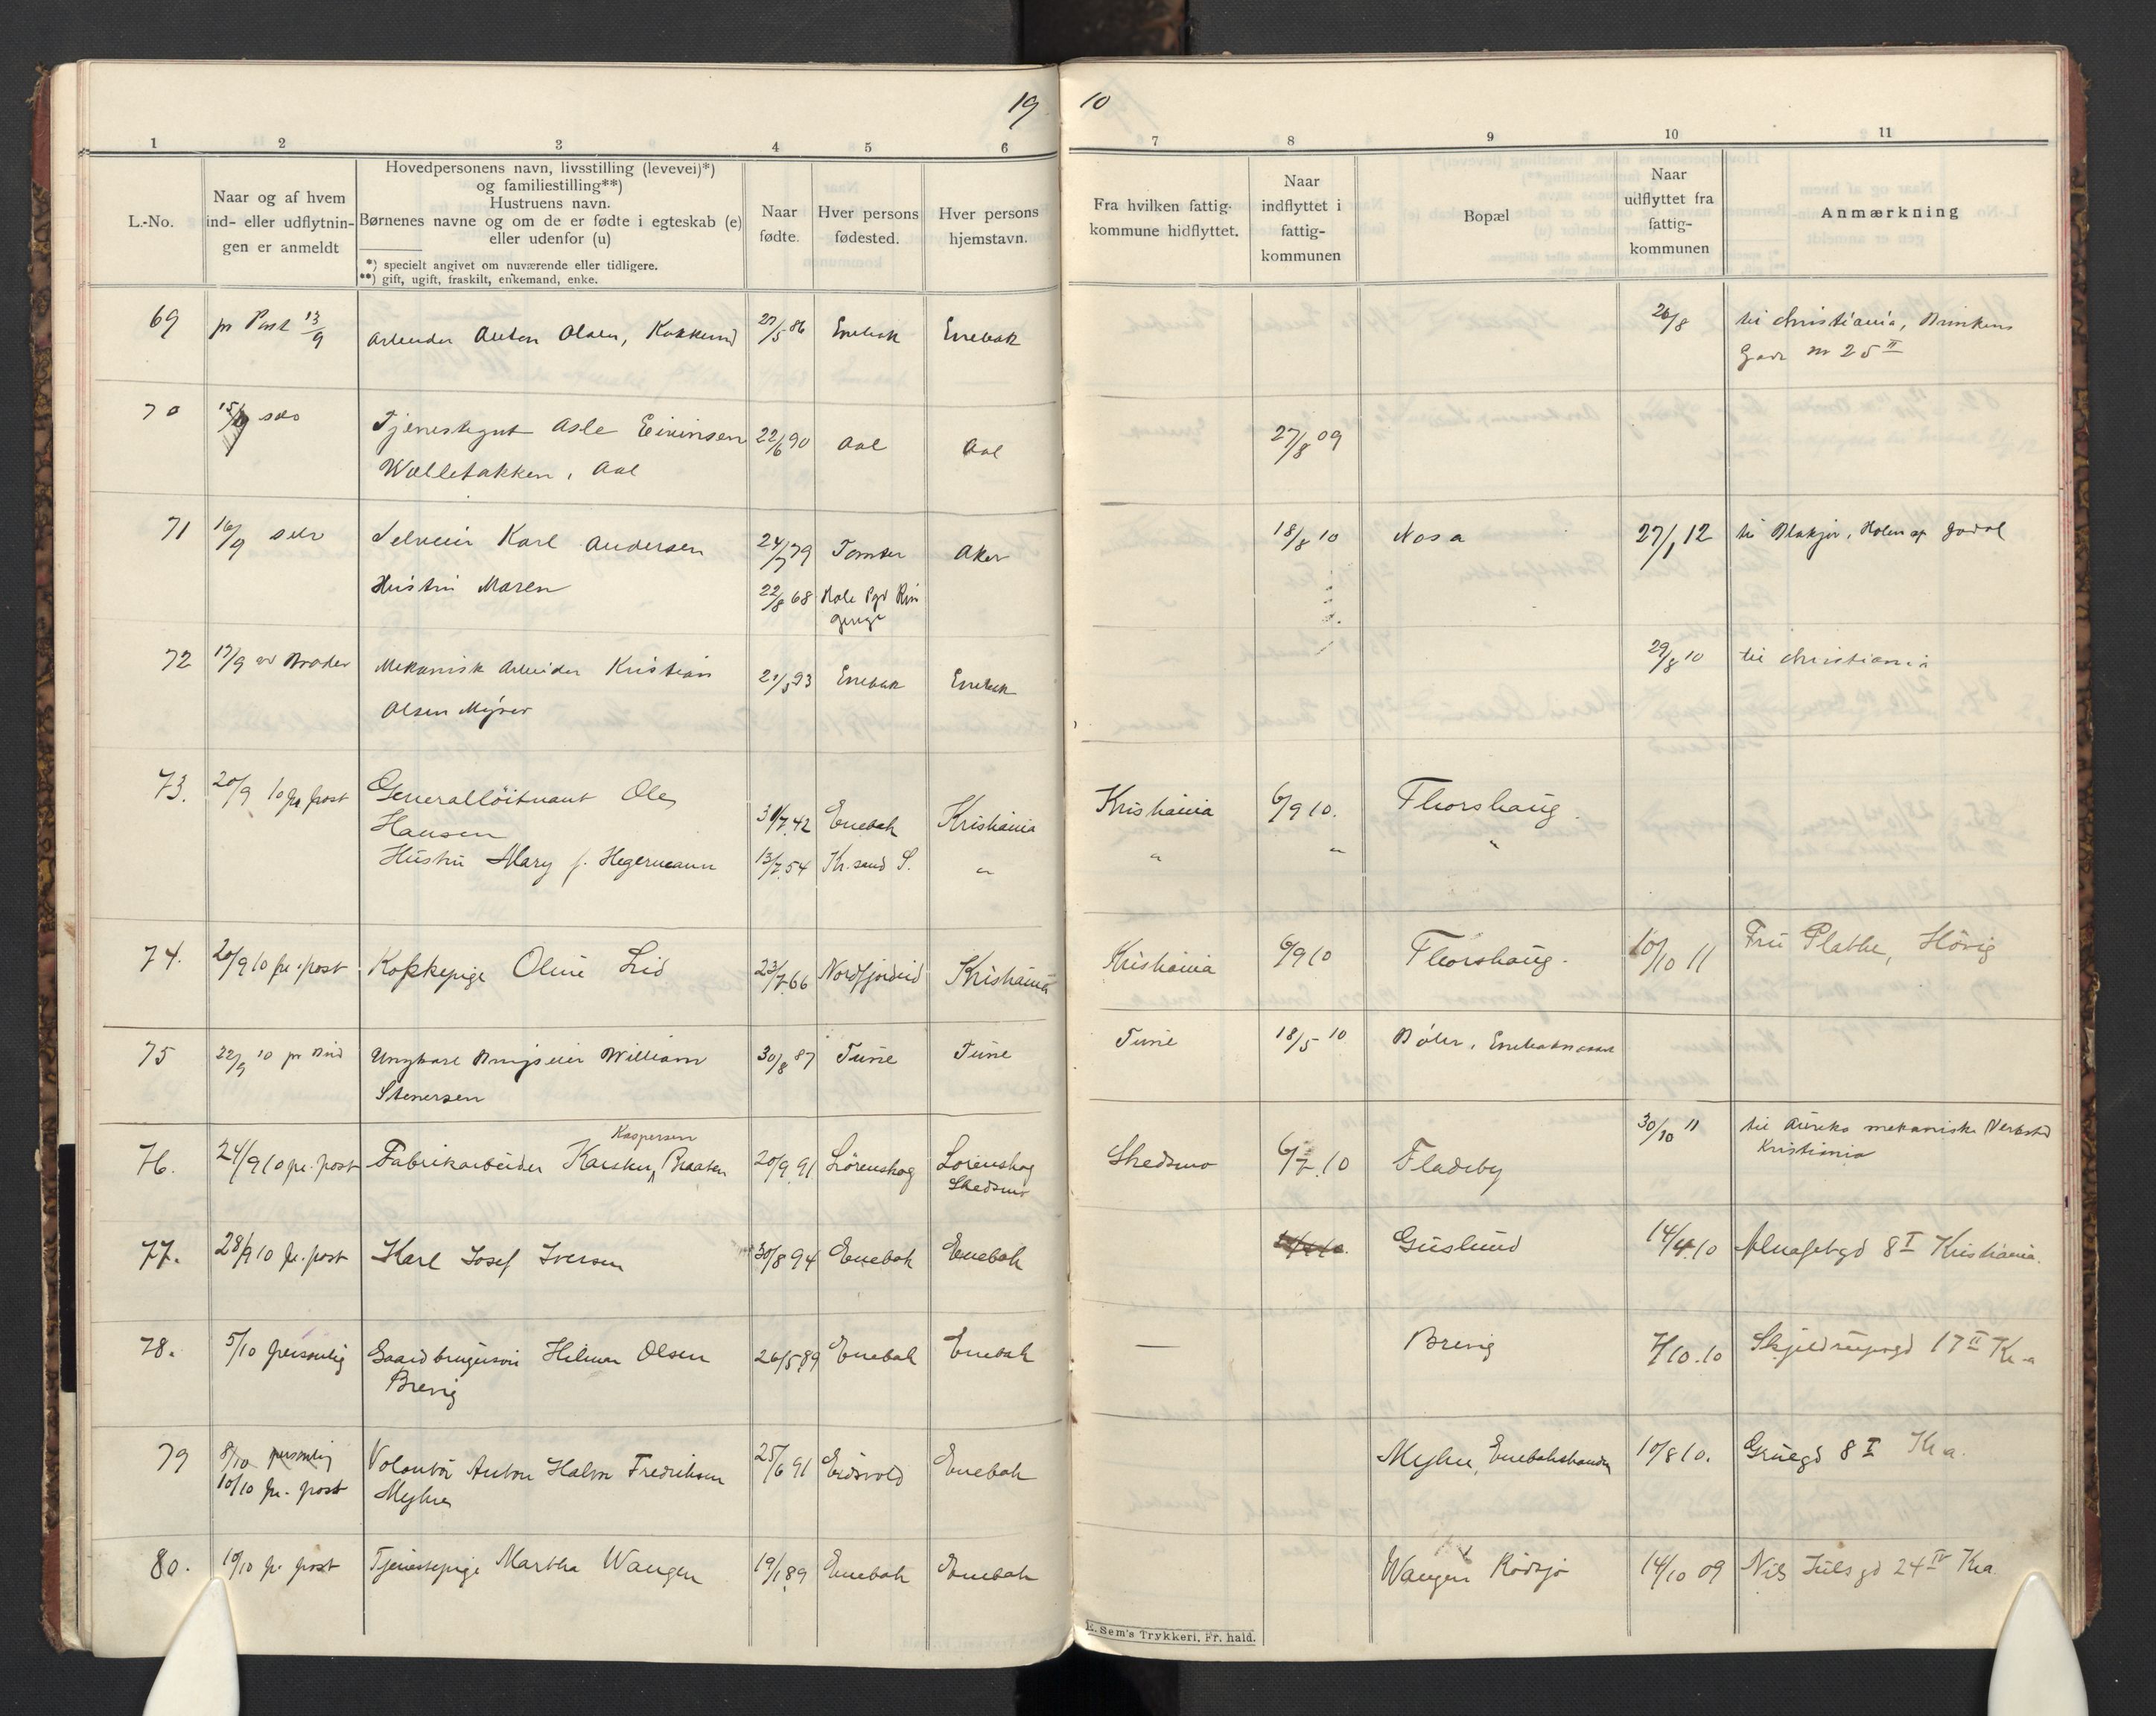 19 10
1 2 3 4 5 6 7 8 9 10 11
L.-No.
Naar og af hvem
ind- eller udflytnin-
gen er anmeldt
Hovedpersonens navn, livsstilling (levevei)*)
og familiestilling**)
Hustruens navn.
Børnenes navne og om de er fødte i egteskab (e)
eller udenfor (u)
*) specielt angivet om nuværende eller tidligere.
**) gift, ugift, fraskilt, enkemand, enke.
Naar
fødte.
Hver persons
fødested.
Hver persons
hjemstavn.
Fra hvilken fattig-
kommune hidflyttet.
Naar
indflyttet i
fattig-
kommunen
Bopæl
Naar
udflyttet fra
fattig-
kommunen
Anmærkning
69 pr Post 13/9 Arbeider Anton Olsen, 27/5 86 Enebak Enebak 20/8 til Christiania,
Gade nr 25 II
70 15/9 Tjenestegut Asle Eivinsen 22/6 90 Aal Aal 27/8 09
Wolletakken, Aal
71 16/9 selv Selveier Karl Andersen 24/7 79 Tomter Aker 18/8 10 Nosa 27/1 12 til Blakjer, Holen
Hustru Maren 22/8 68 Hole Pgd Rin
gerige
72 17/9 av Broder Mekanisk Arbeider Kristian 21/3 93 Enebak Enebak 29/8 10 til Christiania
Olsen Myrer
73. 20/9 10 pr post Generalløitnant Ole 31/7.42 Enebak Kristiania Kristiania 6/9 10. Thorshaug.
Hansen
Hustru Mary f. Hegermann 13/7.54 Kr.sand S. " " " "
74. 20/9 10 pr. post Kokkepige Oline Lid 23/7.66 Nordfjordeid Kristiania Kristiania 6/9 10 Thorshaug. 10/10 11 Fru Plathe, Høvig
75 22/9 10 pr Bud Ungkarl Brugseier William 30/8 87 Tune Tune Tune 18/5 10 Bøler,
Stenersen
Kaspersen
76. 24/9 10 pr. post Fabrikarbeider Karsten Braaten 20/9.91 Lørenskog Lørenskog Skedsmo 6/7.10 Fladeby 30/10 11 til mekaniske Verksted
Skedsmo Kristiania
77. 28/9 10 pr. post Karl Josef Iversen 30/8 94 Enebak Enebak Gislund 14/4.10 8 I Kristiania.
78. 5/10 personlig Gaardbrugersøn Hilmar Olsen 26/5.89 Enebak Enebak — Brevig 7/10.10 Skjeldrupsgd 17 II Kr-a
Brevig
79 8/10 personlig Volontør Anton Halvor Fredriksen 25/6 91 Eidsvold Enebak Myhre, 10/8 10. Grüegd 8 I Kr a.
10/10 pr. post Myhre
80. 10/10 pr. post Tjenestepige Martha Wangen 19/1 89 Enebak Enebak Wangen Rødsjø 14/10 09 Nils Juels gd 24 IV Kr.a
E. Sem's Trykkeri, Fr. hald.